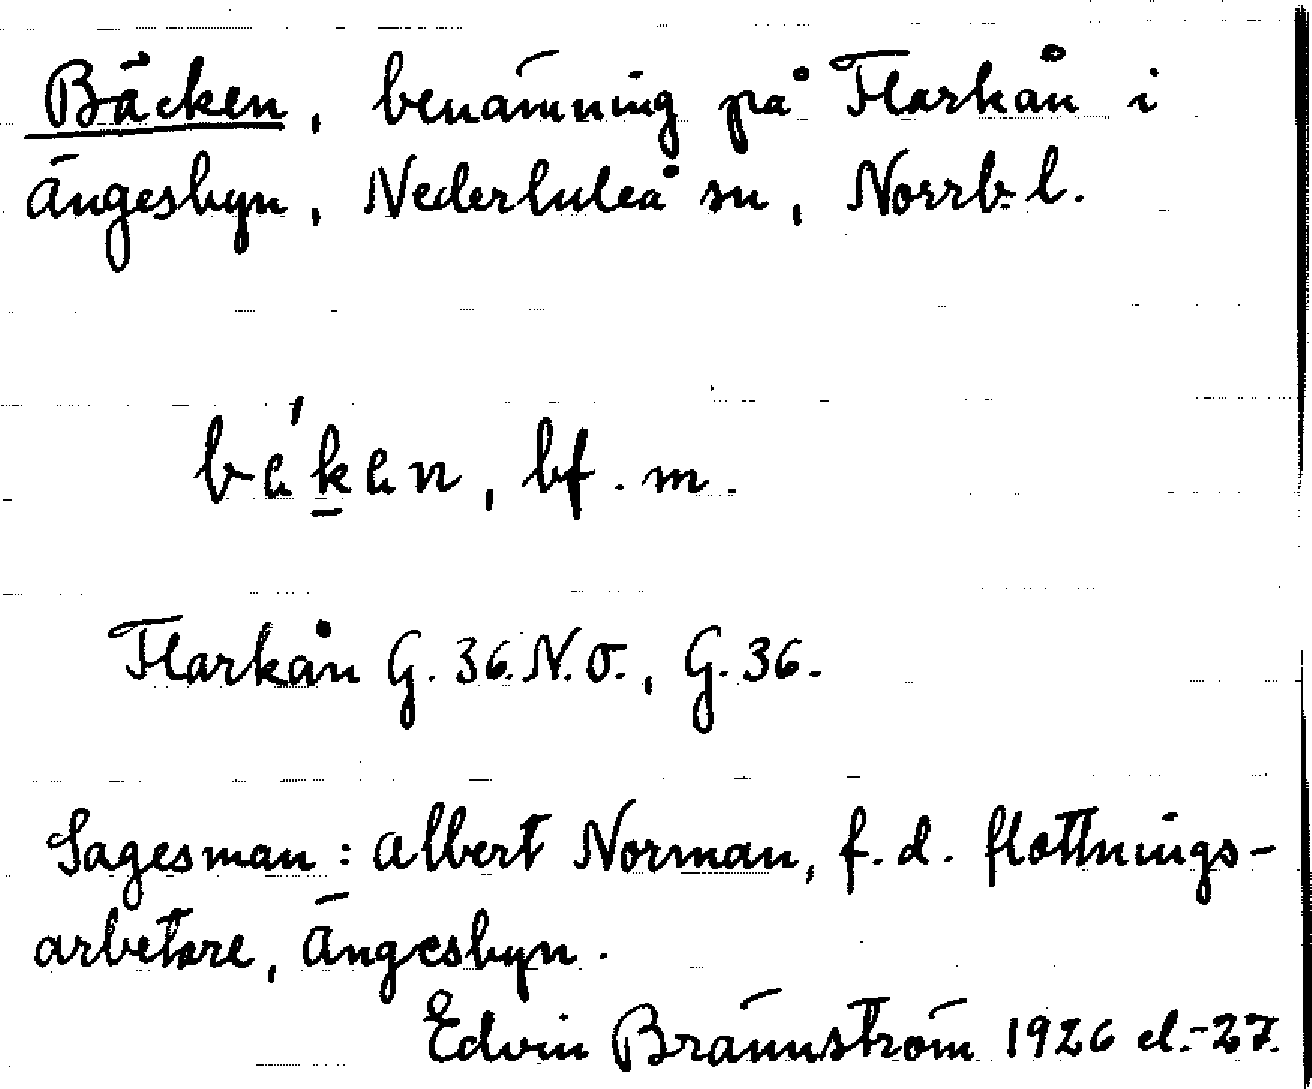 Bäcken, benämning på Flarkån i
Ängesbyn, Nederluleå sn, Norrb. l.
bä́k̠än, bf. m.
Flarkån G. 36. N.O., G. 36.
Sagesman: Albert Norman, f. d. flottnings-
arbetare, Ängesbyn.
Edvin Brännström 1926 el.-27.